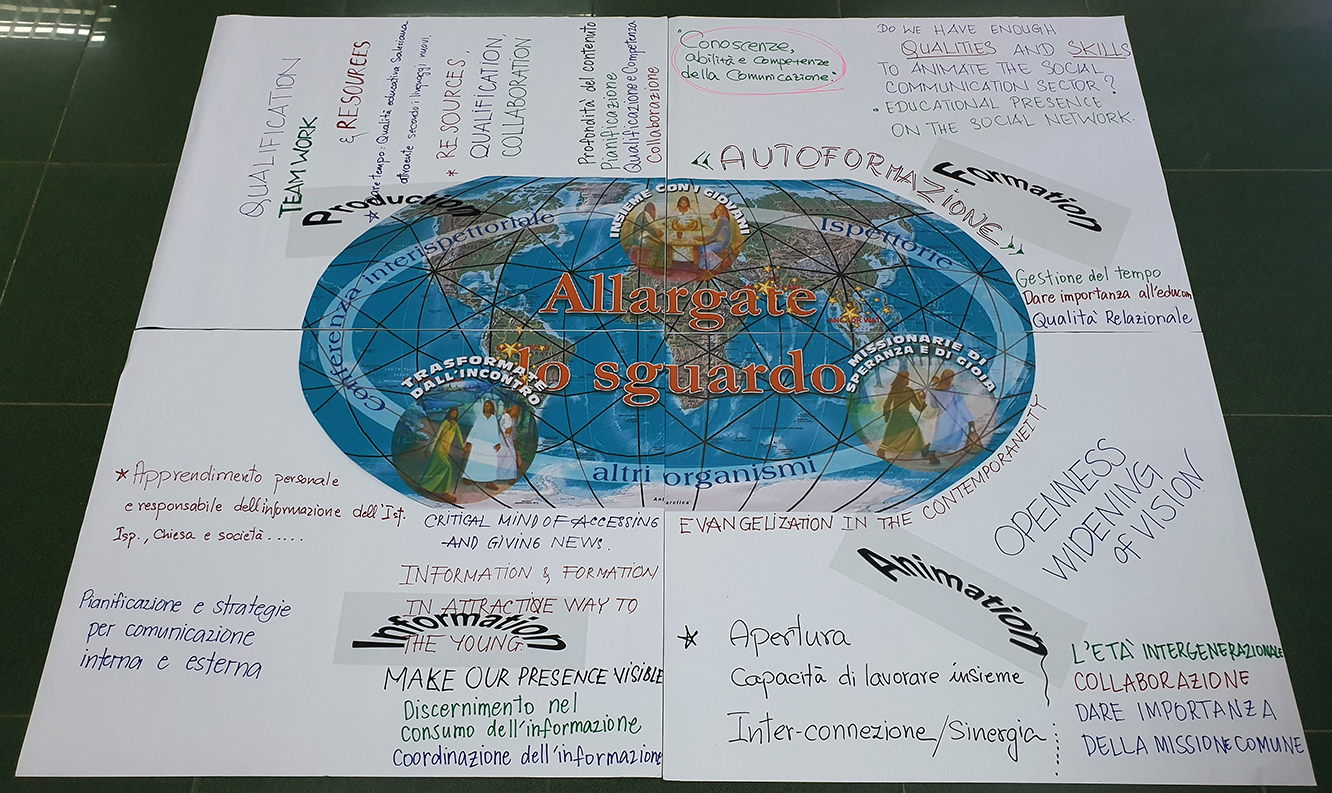 QUALIFICATION
TEAM WORK
& RESOURCES
* Dare tempo: Qualità educativa Salesiana
attraente secondo i linguaggi nuovi.
* RESOURCES,
QUALIFICATION,
COLLABORATION
Profondità del contenuto
Pianificazione
Qualificazione e Competenza
Collaborazione
Production
"Conoscenze,
abilità e competenze
della Comunicazione."
DO WE HAVE ENOUGH
QUALITIES AND SKILLS
TO ANIMATE THE SOCIAL
COMMUNICATION SECTOR?
• EDUCATIONAL PRESENCE
ON THE SOCIAL NETWORK.
«AUTOFORMAZIONE»
Formation
Gestione del tempo
Dare importanza all'educom
Qualità Relazionale
Conferenza interispettoriale
INSIEME CON I GIOVANI
Ispettorie
Allargate
lo sguardo
TRASFORMATE
DALL'INCONTRO
MISSIONARIE DI
SPERANZA E DI GIOIA
altri organismi
Antarctica
* Apprendimento personale
e responsabile dell'informazione dell'Ist.
Isp., Chiesa e società.....
Pianificazione e strategie
per comunicazione
interna e esterna
CRITICAL MIND OF ACCESSING
AND GIVING NEWS.
INFORMATION & FORMATION
IN ATTRACTIVE WAY TO
THE YOUNG.
Information
MAKE OUR PRESENCE VISIBLE
Discernimento nel
consumo dell'informazione
Coordinazione dell'informazione
EVANGELIZATION IN THE CONTEMPORANEITY
OPENNESS
WIDENING
OF VISION
Animation
* Apertura
Capacità di lavorare insieme
Inter-connezione/Sinergia
L'ETÀ INTERGENERAZIONALE
COLLABORAZIONE
DARE IMPORTANZA
DELLA MISSIONE COMUNE